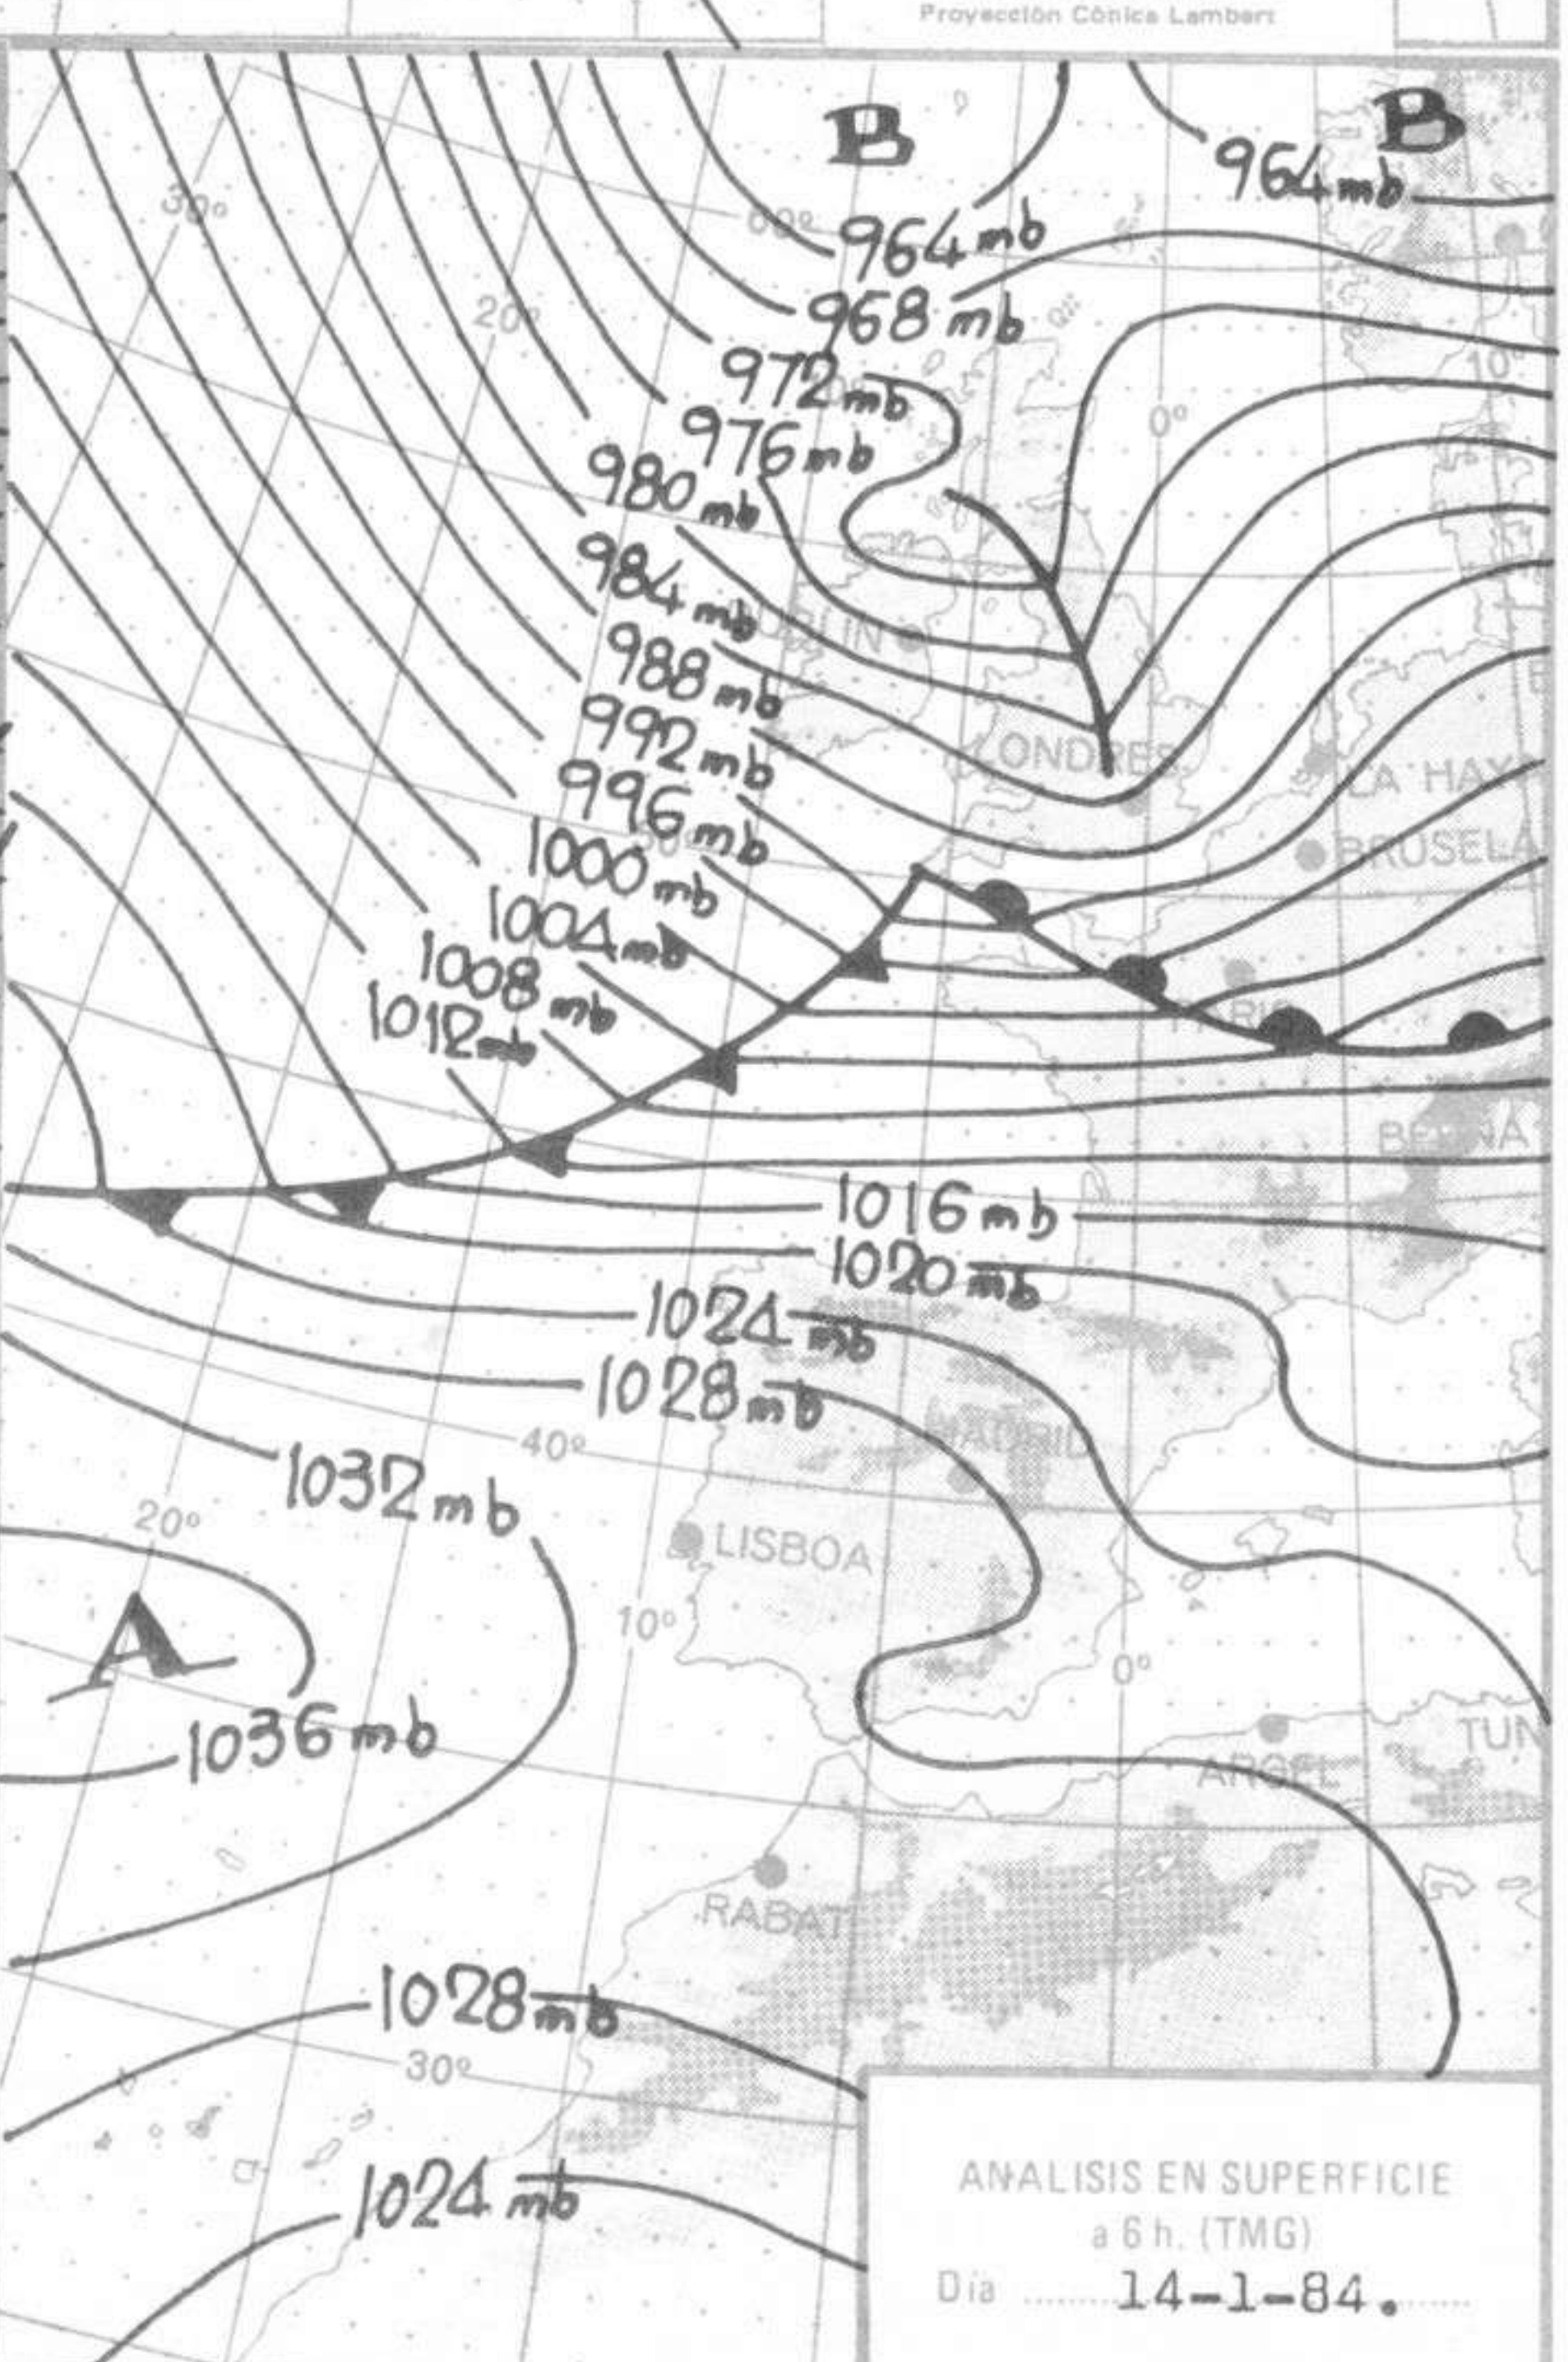 Proyección Cónica Lambert
B
B
964 mb
30º
60º
964 mb
20º
968 mb
972 mb
10º
976 mb
0º
980 mb
984 mb
DUBLIN
988 mb
992 mb
LONDRES
996 mb
LA HAY
1000 mb
BRUSELA
1004 mb
1008 mb
PARIS
1012 mb
BERNA
1016 mb
1020 mb
1024 mb
1028 mb
MADRID
40º
1032 mb
20º
LISBOA
10º
A
0º
1036 mb
TUN
ARGEL
RABAT
1028 mb
30º
1024 mb
ANALISIS EN SUPERFICIE
a 6 h. (TMG)
Día 14-1-84.